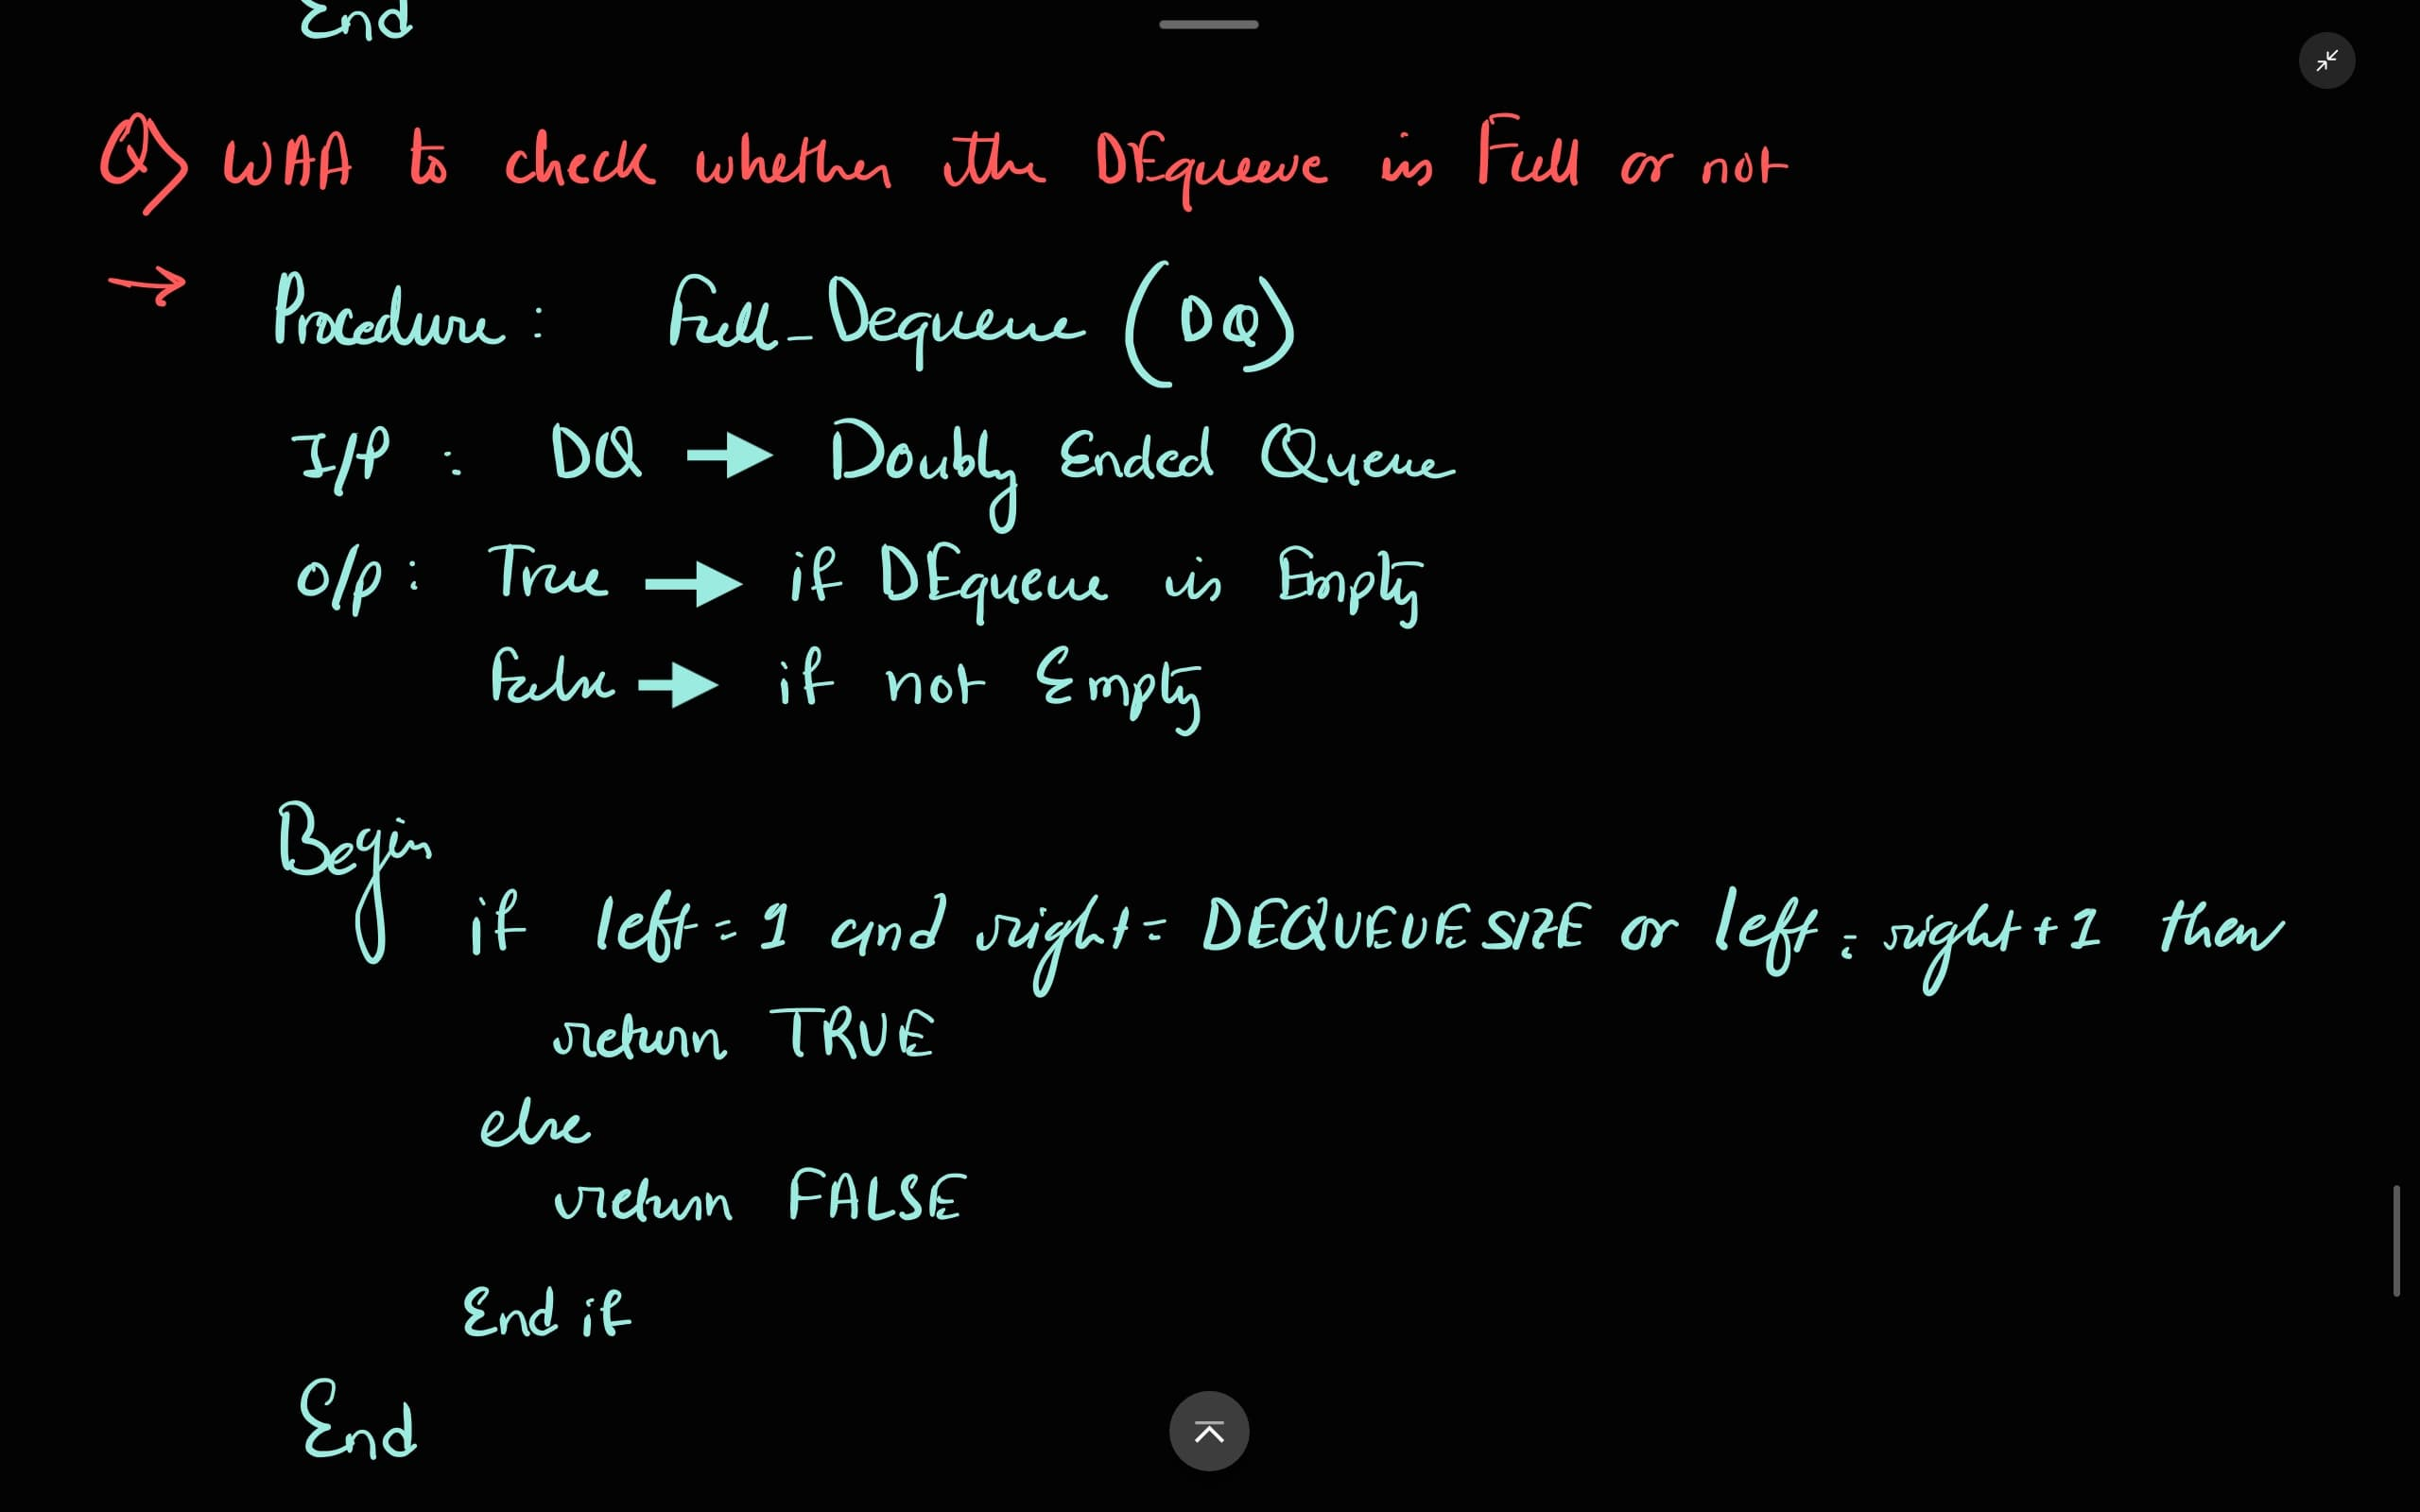 End
Q> WAA to check whether the DEqueue is Full or not
→ Procedure : Full_Dequeue (DQ)
I/P : DQ → Doubly Ended Queue
O/p : True → if DEqueue is Empty
False → if not Empty
Begin
if left = 1 and right = DEQUEUESIZE or left = right + 1 then
return TRUE
else
return FALSE
End if
End